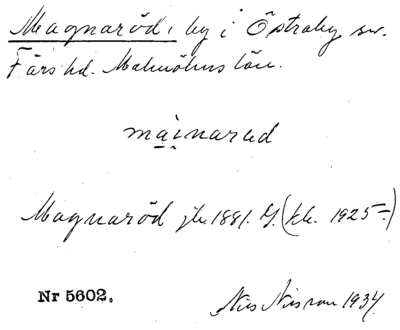 Magnaröd, by i Östraby sn.
Färs hd. Malmöhus län.
màinarud
Magnaröd jb. 1881. G. (kk. 1925-)
Nr 5602.
Nils Nilsson 1934.